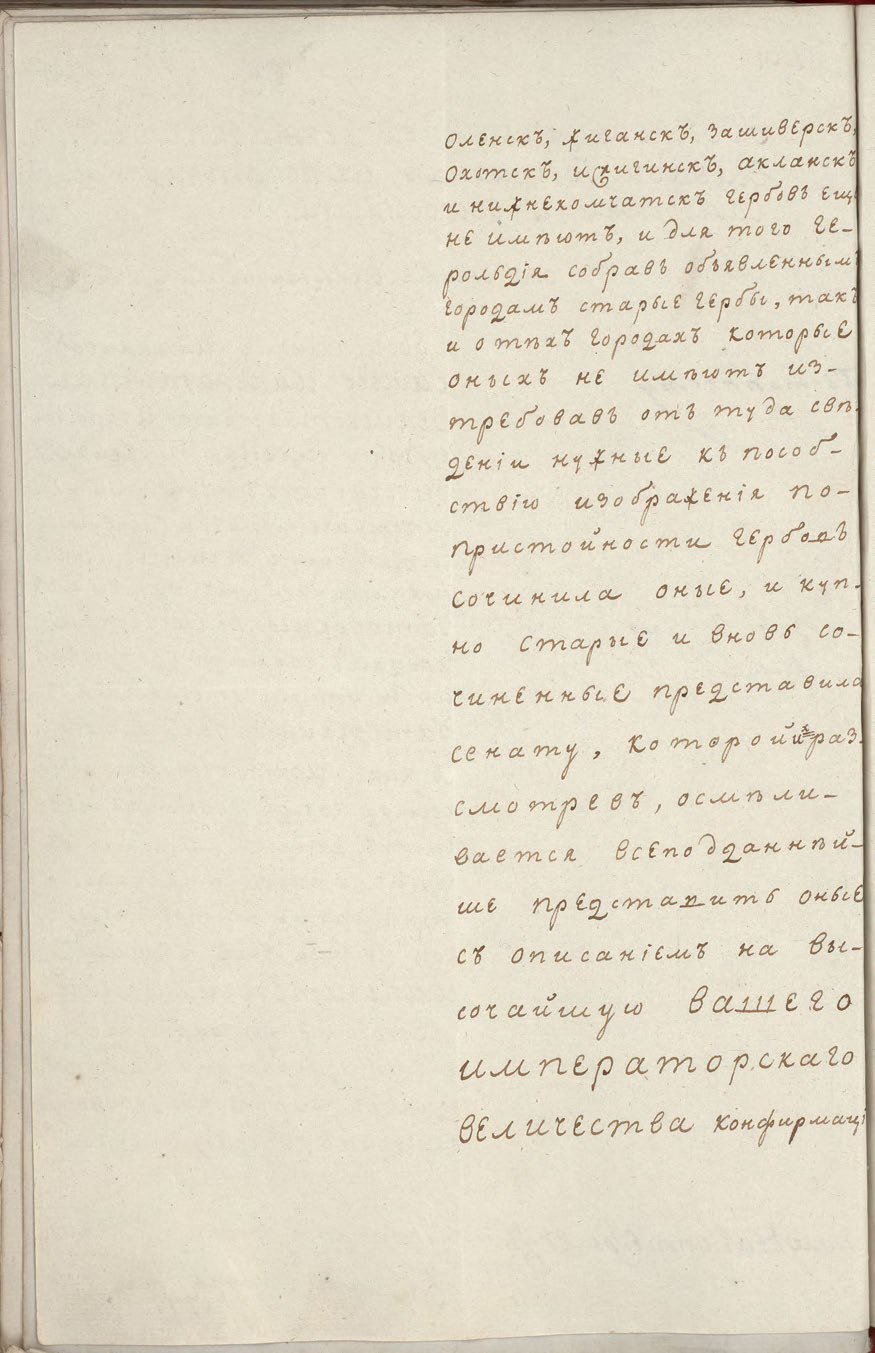 Оленскъ, жиганскъ, зашиверскъ,
Охотскъ, ижигинскъ, акланскъ
и нижнекомчатскъ гербовъ еще
не имѣютъ, и для того ге-
рольдія собравъ объявленнымъ
городамъ старые гербы, такъ
и о тѣхъ городахъ которые
оныхъ не имѣютъ из-
требовавъ отъ туда свѣ-
деніи нужные къ пособ-
ствію изображенія по-
пристойности гербовъ
сочинила оные, и куп-
но старые и вновь со-
чиненные представила
сенату, которой ихъ раз-
смотревъ, осмѣли-
вается всеподданнѣй-
ше представить оные
съ описаніемъ на вы-
сочайшую вашего
императорскаго
величества конфирмаці